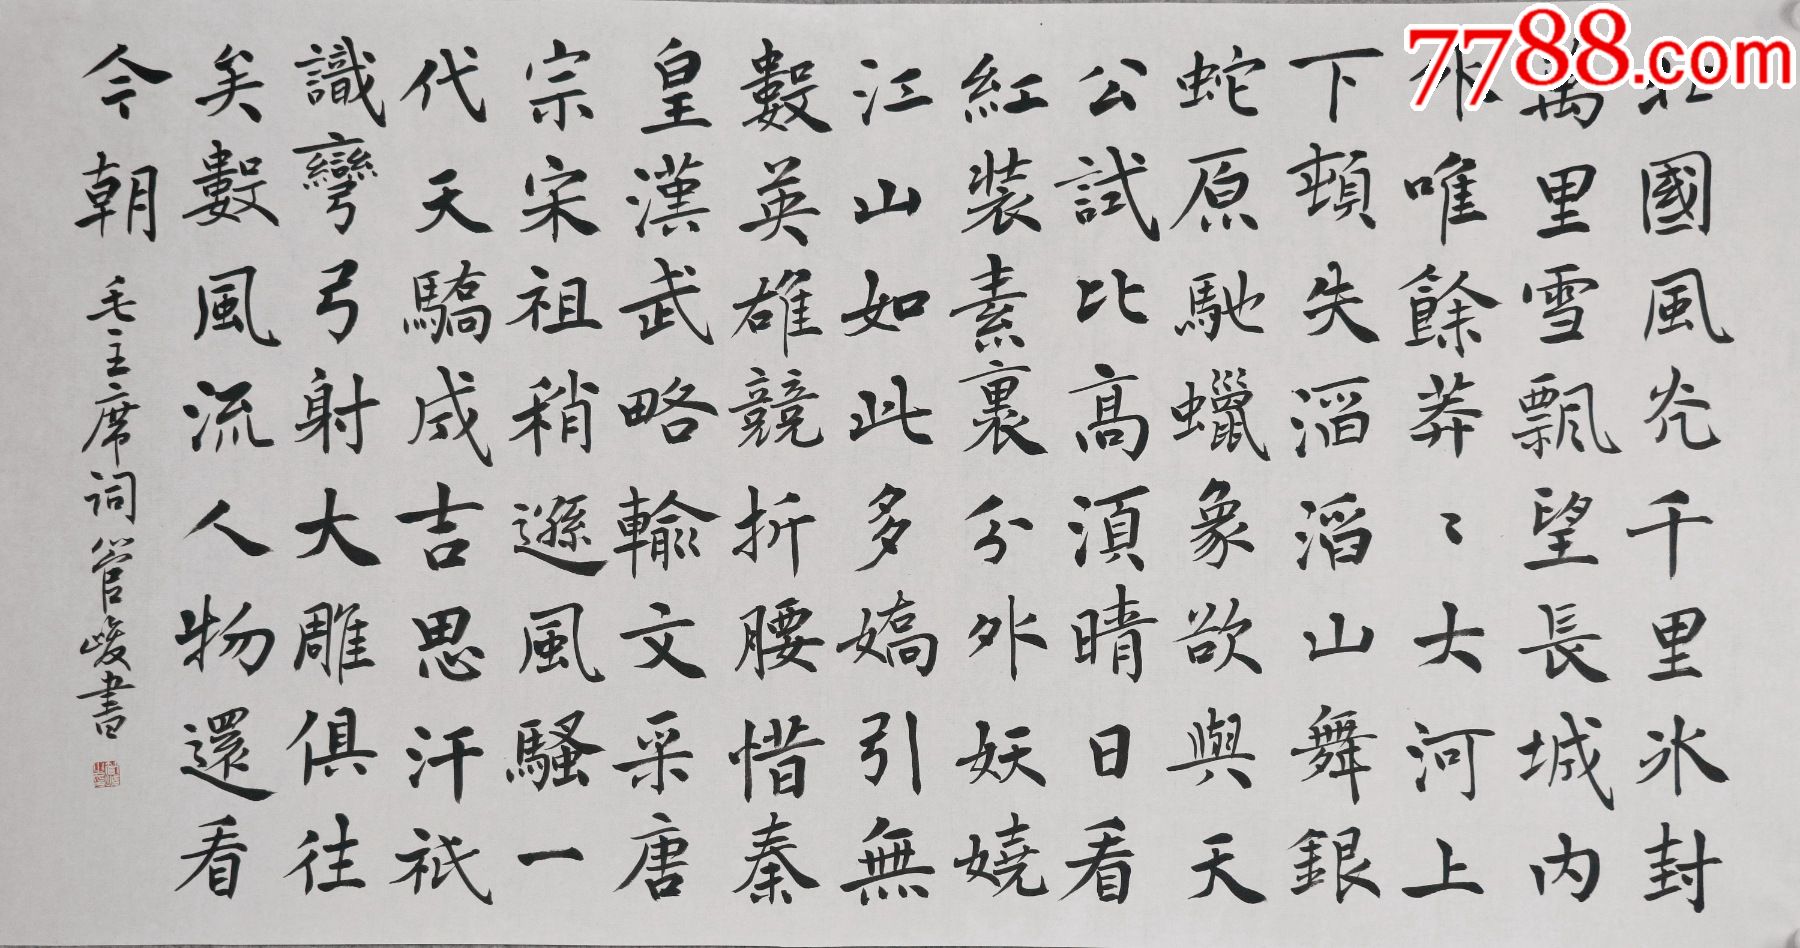 7788.com
北國風光千里冰封
萬里雪飄望長城內
外唯餘莽〻大河上
下頓失滔滔山舞銀
蛇原馳蠟象欲與天
公試比高須晴日看
紅裝素裹分外妖嬈
江山如此多嬌引無
數英雄競折腰惜秦
皇漢武略輸文采唐
宗宋祖稍遜風騷一
代天驕成吉思汗祇
識彎弓射大雕俱往
矣數風流人物還看
今朝 毛主席詞管峻書